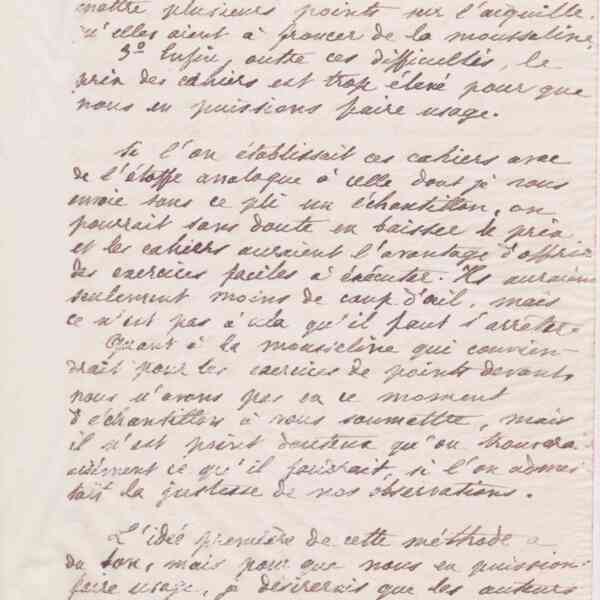 mettre plusieurs points sur l'aiguille.
qu'elles aient à froncer de la mousseline.
3º Enfin, outre ces difficultés, le
prix des cahiers est trop élevé pour que
nous en puissions faire usage.
Si l'on établissait ces cahiers avec
de l'étoffe analogue à celle dont je vous
envoie sous ce pli un échantillon, on
pourrait sans doute en baisser le prix
et les cahiers auraient l'avantage d'offrir
des exercices faciles à exécuter. Ils auraient
seulement moins de coup d'œil, mais
ce n'est pas à cela qu'il faut s'arrêter.
Quant à la mousseline qui convien-
drait pour les exercices de points devant,
nous n'avons pas en ce moment
d'échantillon à vous soumettre, mais
il n'est point douteux qu'on trouvera
aisément ce qu'il faudrait, si l'on admet
tait la justesse de nos observations.
L'idée première de cette méthode a
du bon, mais pour que nous en puission
faire usage, je désirerais que les auteurs